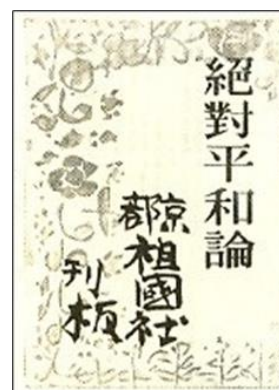 絕對平和論
京都
祖國社
刊板